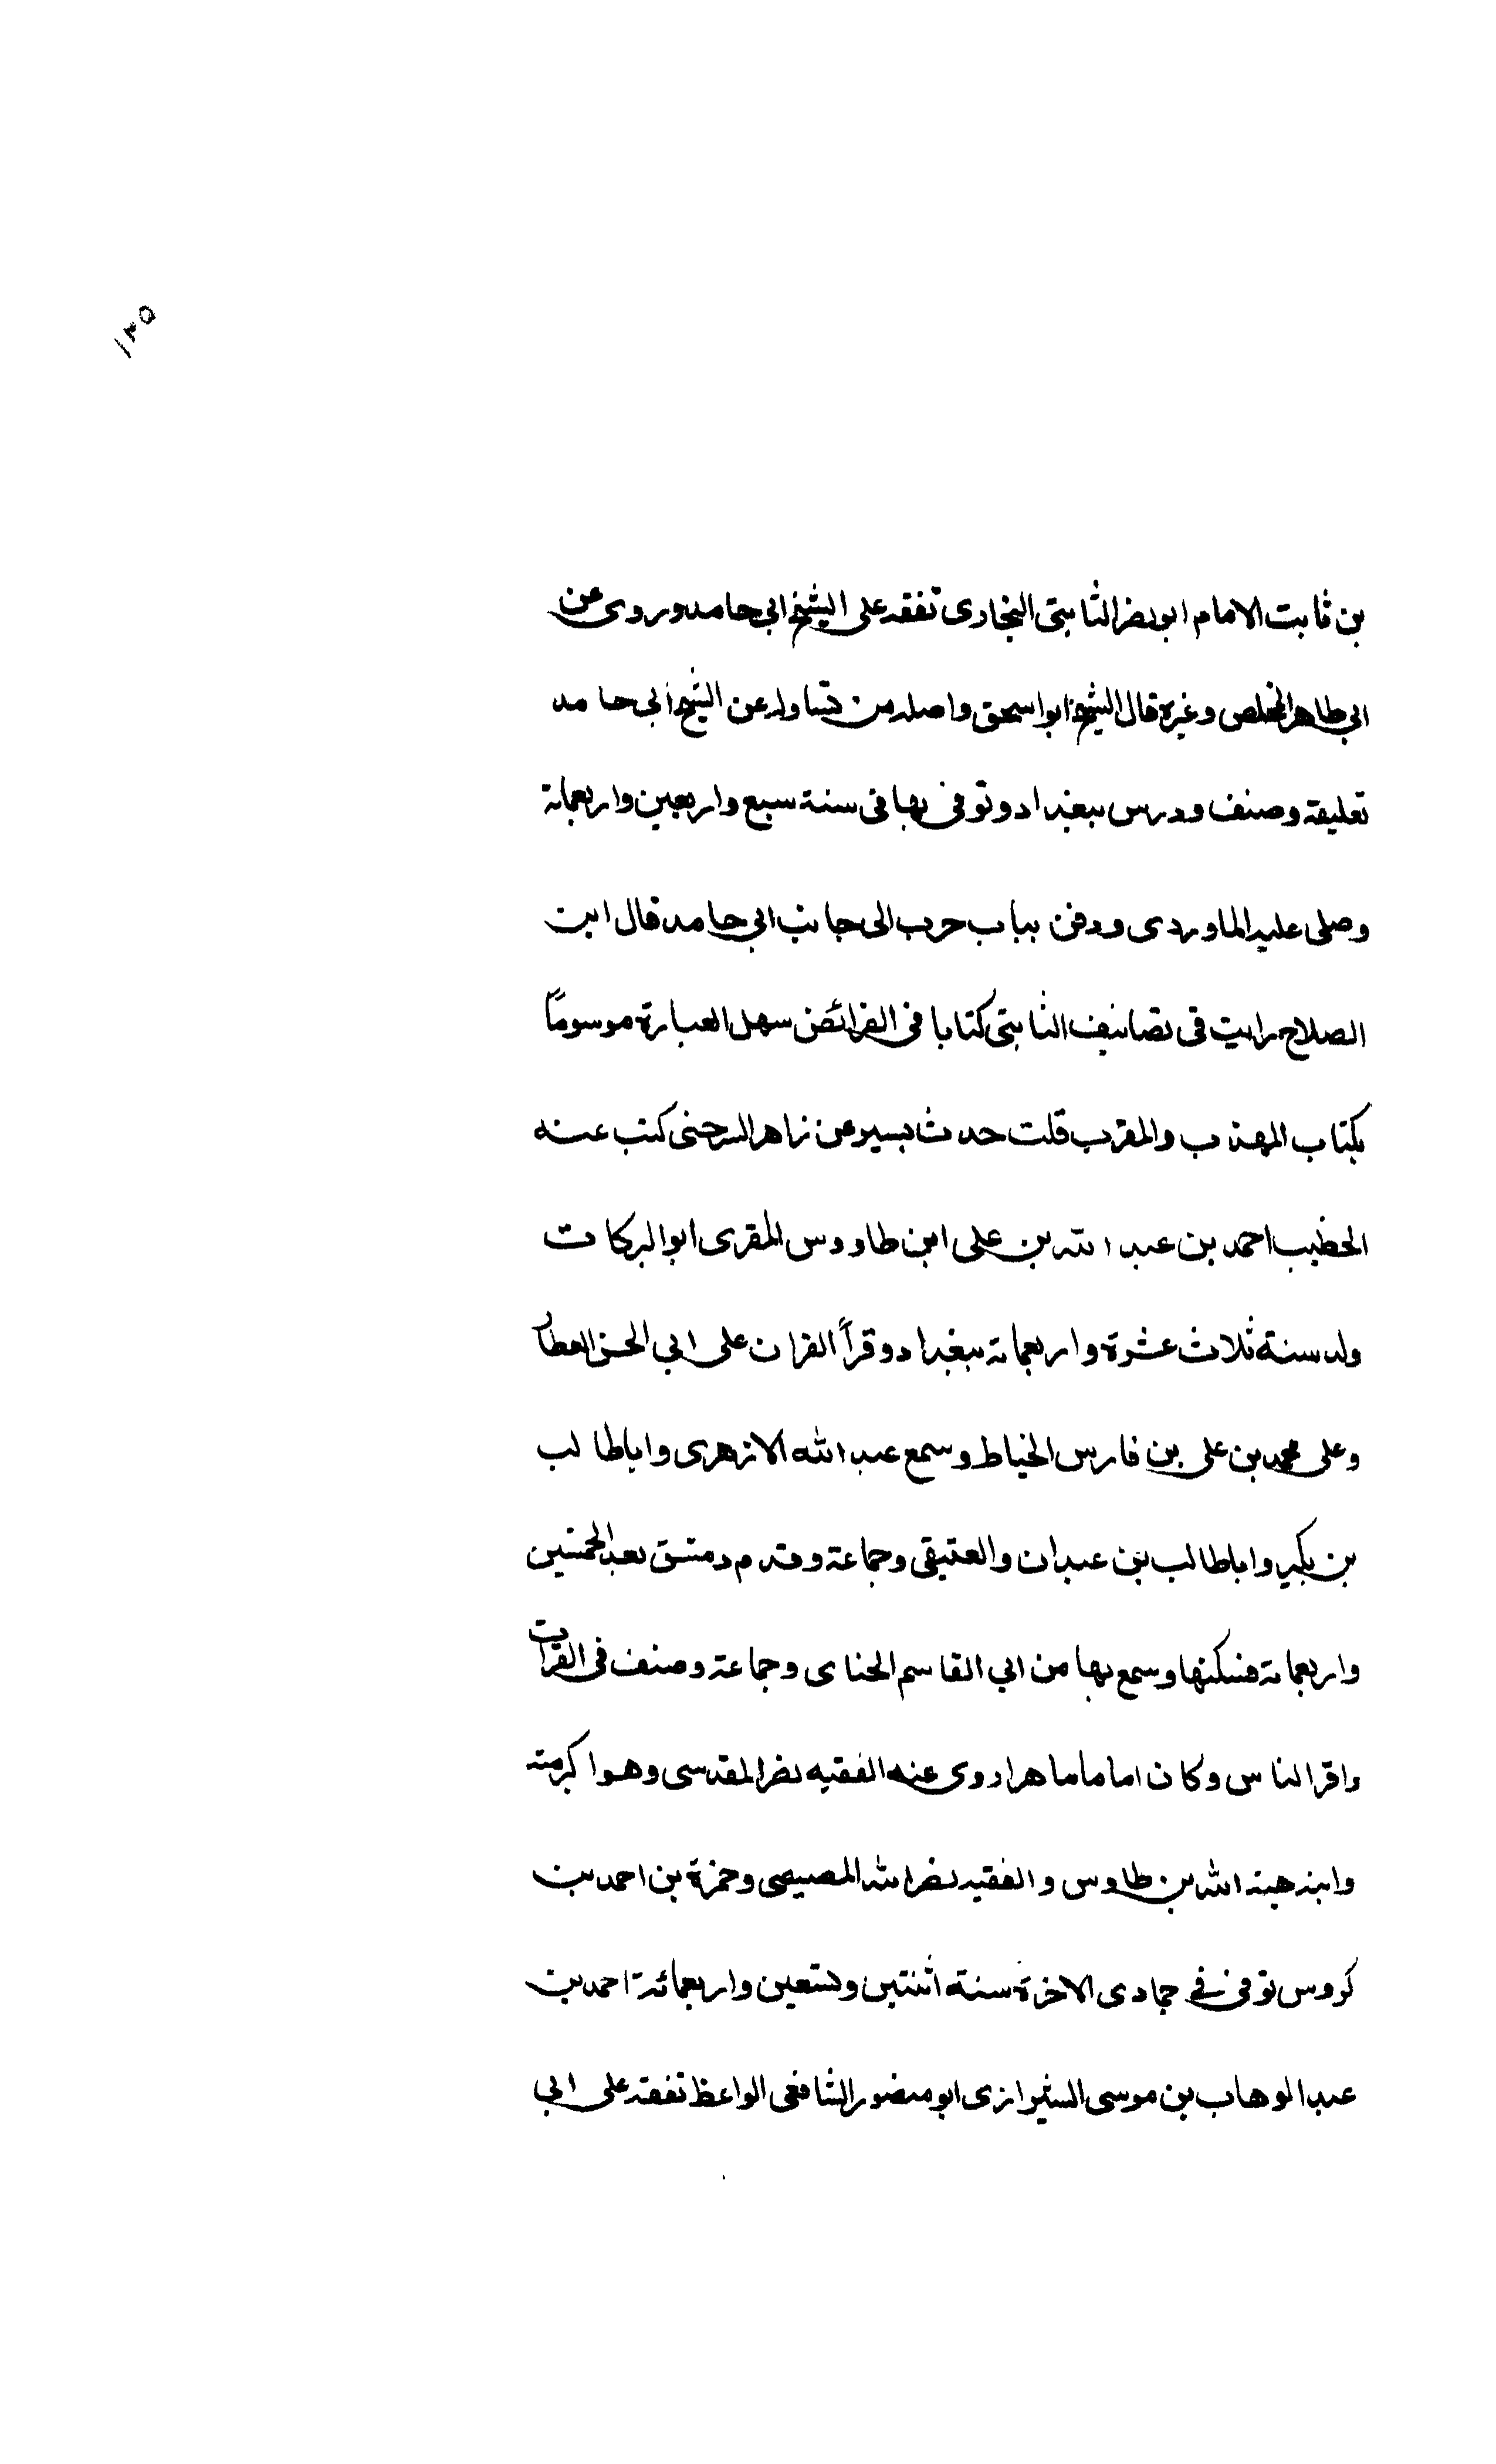 ١٣٥
بن ثابت الامام ابو نصر الثابتى البخارى تفقه على الشيخ ابي حامد وروى عن
ابي طاهر المخلص وغيره قال الشيخ ابو اسحق واصله من تناوله عن الشيخ ابي حامد
تعليقة وصنف ودرس ببغداد وتوفى بها فى سنة سبع واربعين واربعماية
وصلى عليه الماوردى ودفن بباب حرب الى جانب ابي حامد قال ابن
الصلاح رايت فى تصانيف الثابتى كتابا فى الفرائض سهل العبارة موسومًا
بكتاب المهذب والمقرب قلت حدث بيسير عن زاهر السرخسى كتب عنه
الخطيب احمد بن عبد الله بن على ابن طاووس المقرى ابو البركات
ولد سنة ثلاث عشرة واربعماية ببغداد وقرأ القران على ابي الحسن العطار
وعلى محمد بن على بن فارس الخياط وسمع عبد الله الازهرى واباطالب
بن بكير واباطالب بن عبدان والعتيقى وجماعة وقدم دمشق بعد الخمسين
واربعماية فسكنها وسمع بها من ابي القاسم الحناى وجماعة وصنف فى القرات
واقرا الناس وكان اماما ماهرا روى عنه الفقيه نصر المقدسى وهو اكبر منه
وابنه هبة الله بن طاوس والفقيه نصر الله المصيصى وحمزة بن احمد بن
كروس توفى فى جمادى الاخرة سنة اثنتين وتسعين واربعمائة احمد بن
عبد الوهاب بن موسى الشيرازى ابو منصور الشافعى الواعظ تفقه على ابي